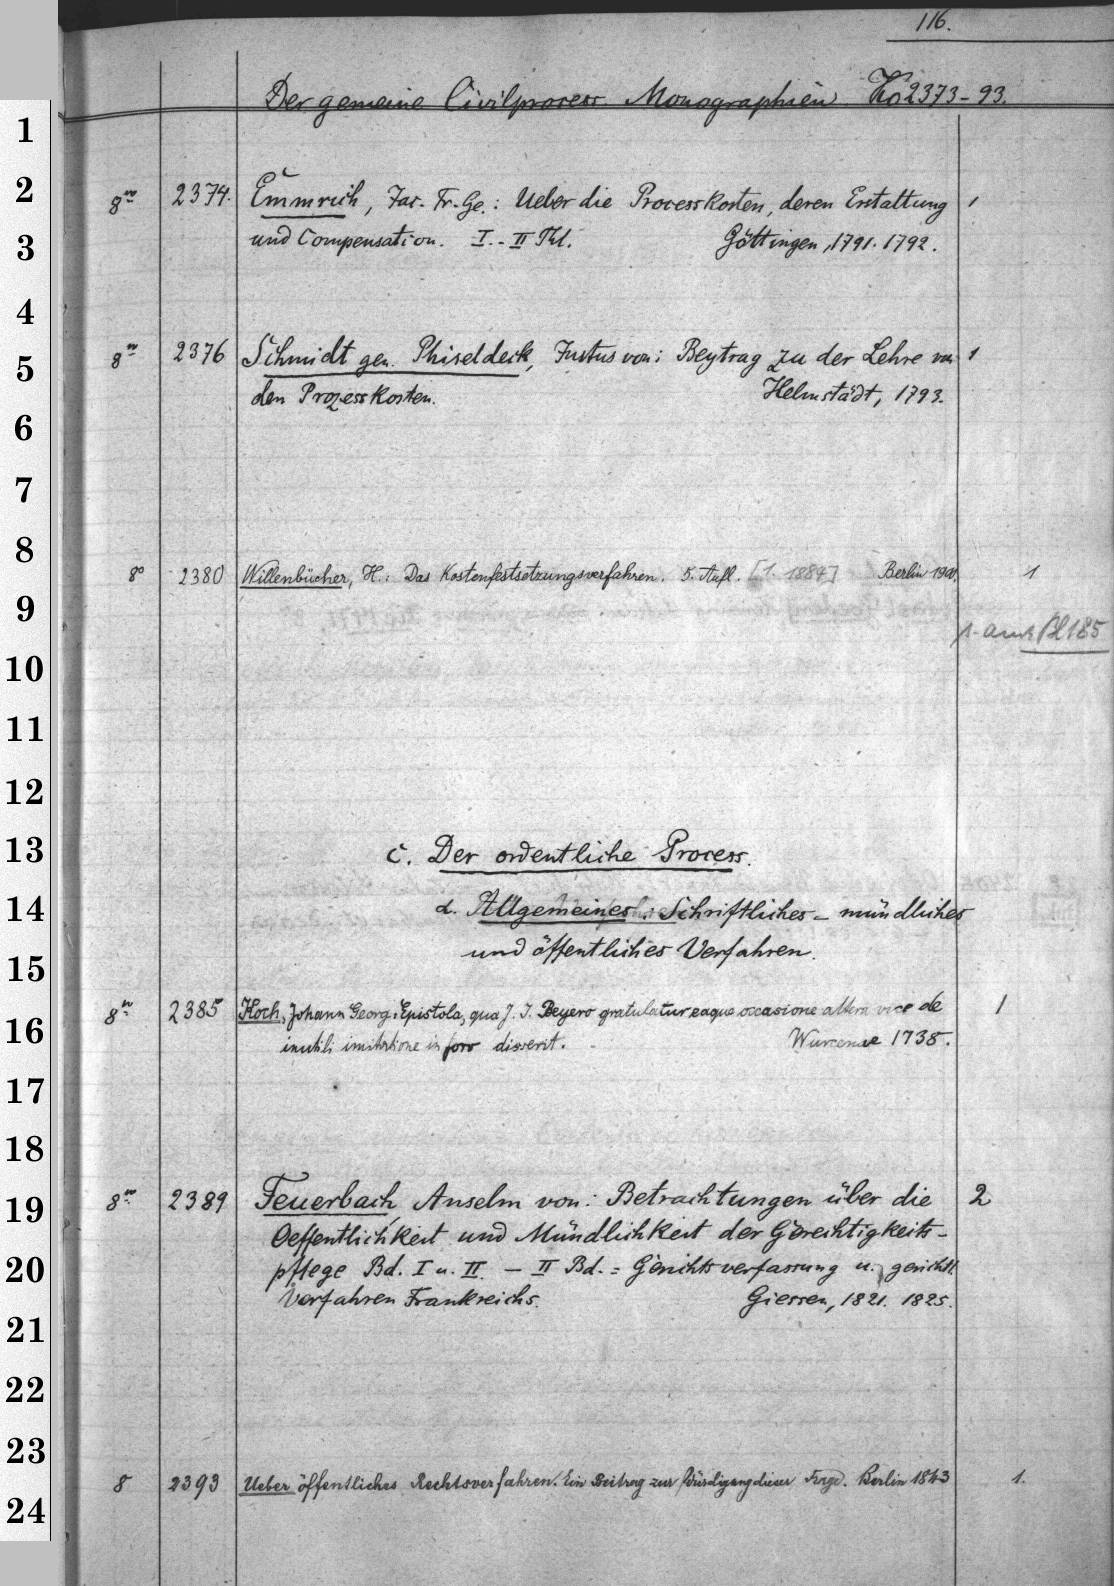 116.
Der gemeine Civilprocess Monographien Ko 2373-93.
1
2
8vo 2374. Emmrich, Jac. Fr. Ge.: Ueber die Processkosten, deren Erstattung 1
3
und Compensation. I.-II Thl. Göttingen, 1791. 1792.
4
8vo 2376 Schmidt gen. Phiseldeck, Justus von: Beytrag zu der Lehre von 1
5
den Prozesskosten. Helmstädt, 1793.
6
7
8
8° 2380 Willenbücher, H.: Das Kostenfestsetzungsverfahren. 5. Aufl. [1. 1884] Berlin 1900. 1
9
Bl 185
10
11
12
13 c. Der ordentliche Process.
14 α. Allgemeines: Schriftliches - mündliches
und öffentliches Verfahren.
15
8vo 2385 Koch, Johann Georg: Epistola, qua J. J. Beyero gratulatur eaque occasione altera vice de 1
16
inutili imitatione in foro disserit. Wurcenae 1738.
17
18
19 8vo 2389 Feuerbach Anselm von: Betrachtungen über die 2
Oeffentlichkeit und Mündlichkeit der Gerechtigkeits-
20 pflege Bd. I u. II. - II Bd. = Gerichtsverfassung u. gerichtl.
Verfahren Frankreichs. Giessen, 1821. 1825.
21
22
23
8 2393 Ueber öffentliches Rechtsverfahren. Ein Beitrag zur Würdigung dieser Frage. Berlin 1843 1.
24